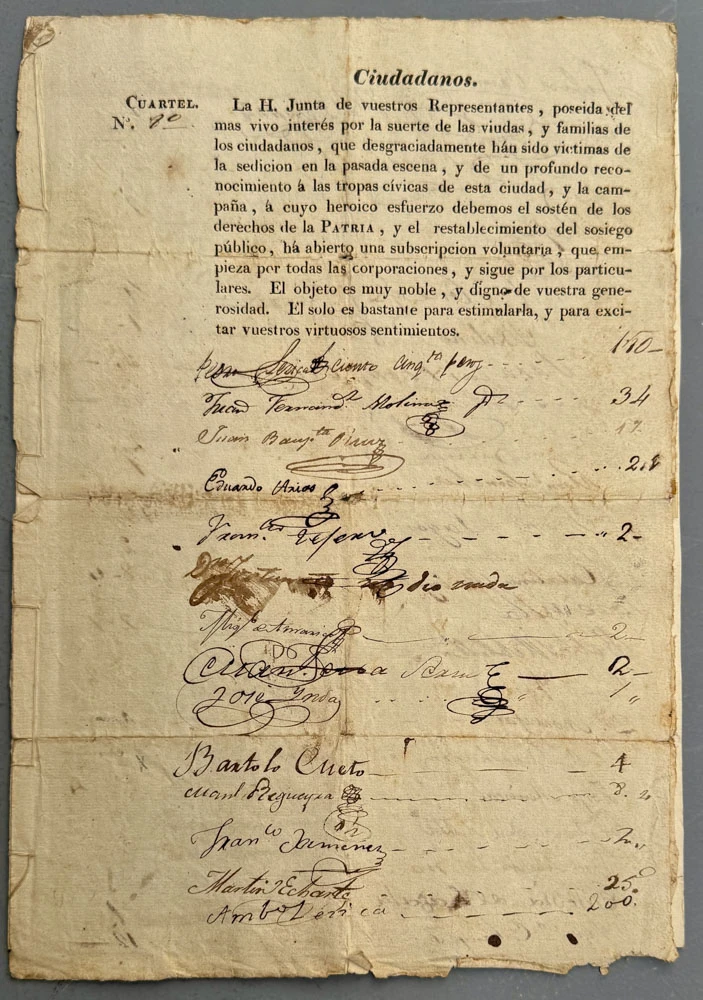 Ciudadanos.
CUARTEL.
Nº.
La H. Junta de vuestros Representantes, poseida del
mas vivo interés por la suerte de las viudas, y familias de
los ciudadanos, que desgraciadamente hán sido victimas de
la sedicion en la pasada escena, y de un profundo reco-
nocimiento á las tropas cívicas de esta ciudad, y la cam-
paña, á cuyo heroico esfuerzo debemos el sostén de los
derechos de la PATRIA, y el restablecimiento del sosiego
público, há abierto una subscripcion voluntaria, que em-
pieza por todas las corporaciones, y sigue por los particu-
lares. El objeto es muy noble, y digno de vuestra gene-
rosidad. El solo es bastante para estimularla, y para exci-
tar vuestros virtuosos sentimientos.
ciento cinq.ta 150
Juan Fernand.z Molina 34
Juan Baup.ta 12
Eduardo Arios
Fran.co 2
dio nada
Mig.l 2
2
José 1
Bartolo Cueto 4
Man.l 8
Fran.co Ximenez 2
Martin Echarte 25
200